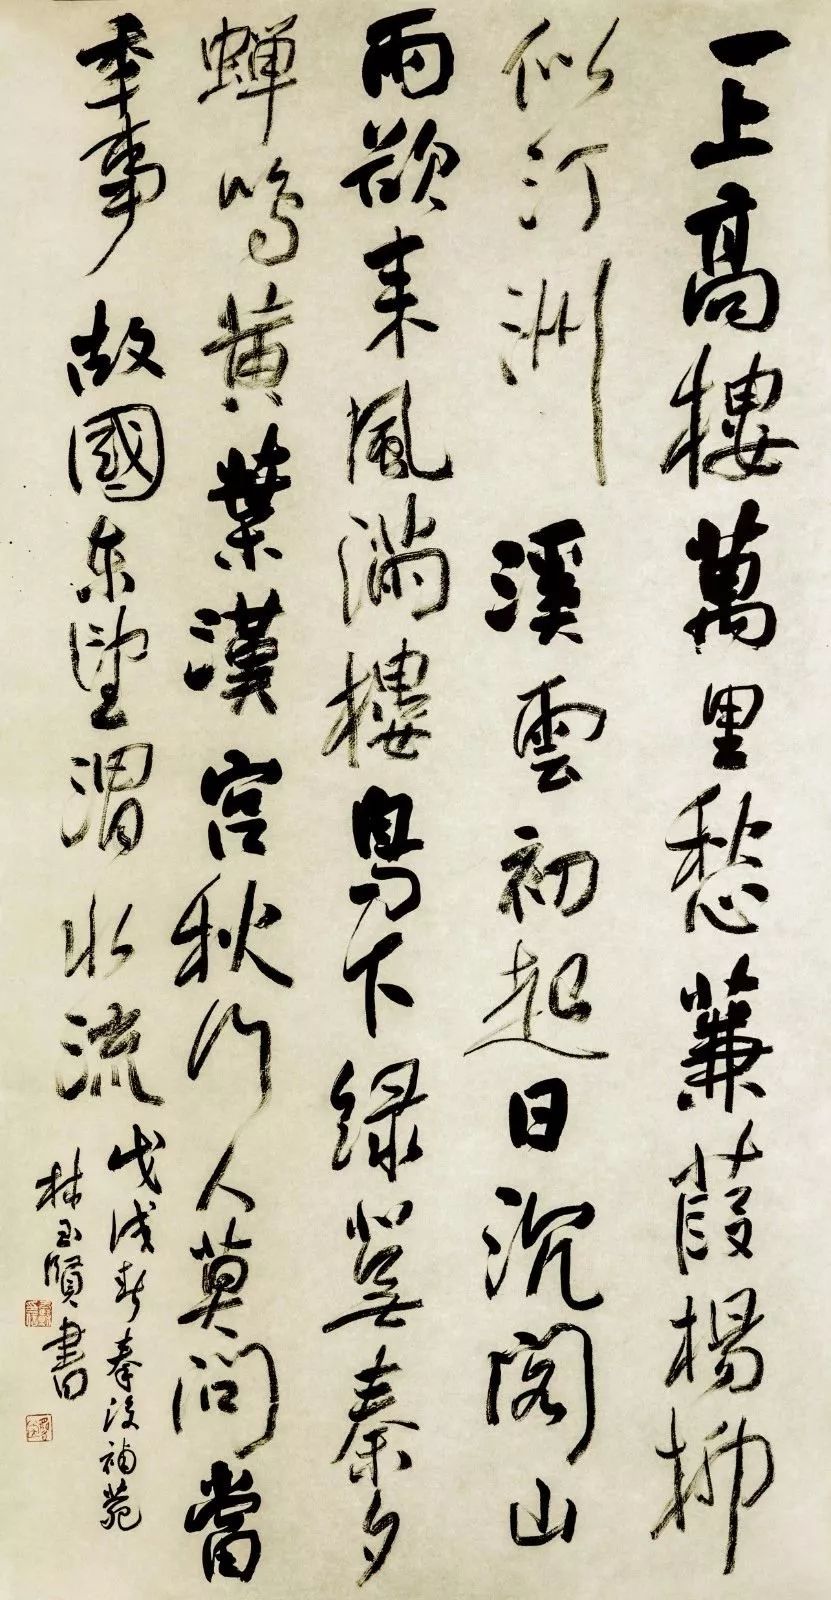 一上高樓萬里愁蒹葭楊柳
似汀洲溪雲初起日沉閣山
雨欲来風滿樓鳥下绿蕪秦夕
蝉鳴黄葉漢宮秋行人莫問當
年事故國东望渭水流
戊戌春
林玉賢書